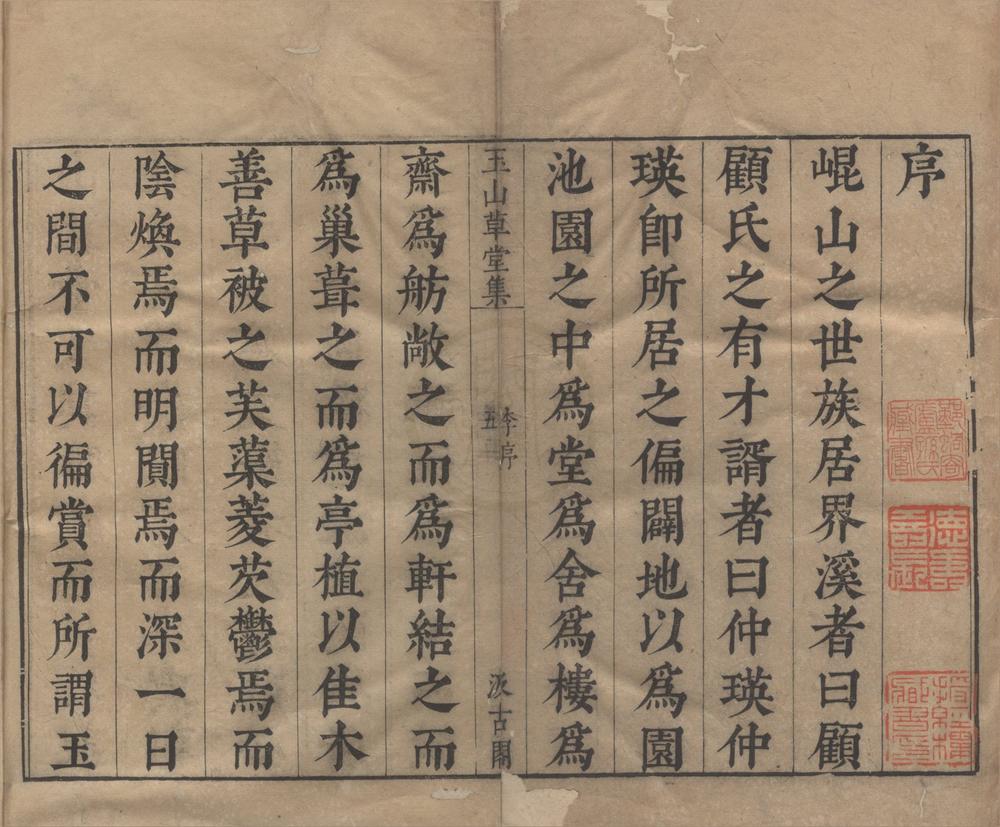 序
崐山之世族居界溪者曰顧
顧氏之有才諝者曰仲瑛仲
瑛卽所居之偏闢地以爲園
池園之中爲堂爲舍爲樓爲
玉山草堂集
李序
五
汲古閣
齋爲舫敞之而爲軒結之而
爲巢葺之而爲亭植以佳木
善草被之芙蕖菱芡鬱焉而
陰煥焉而明閴焉而深一日
之間不可以徧賞而所謂玉